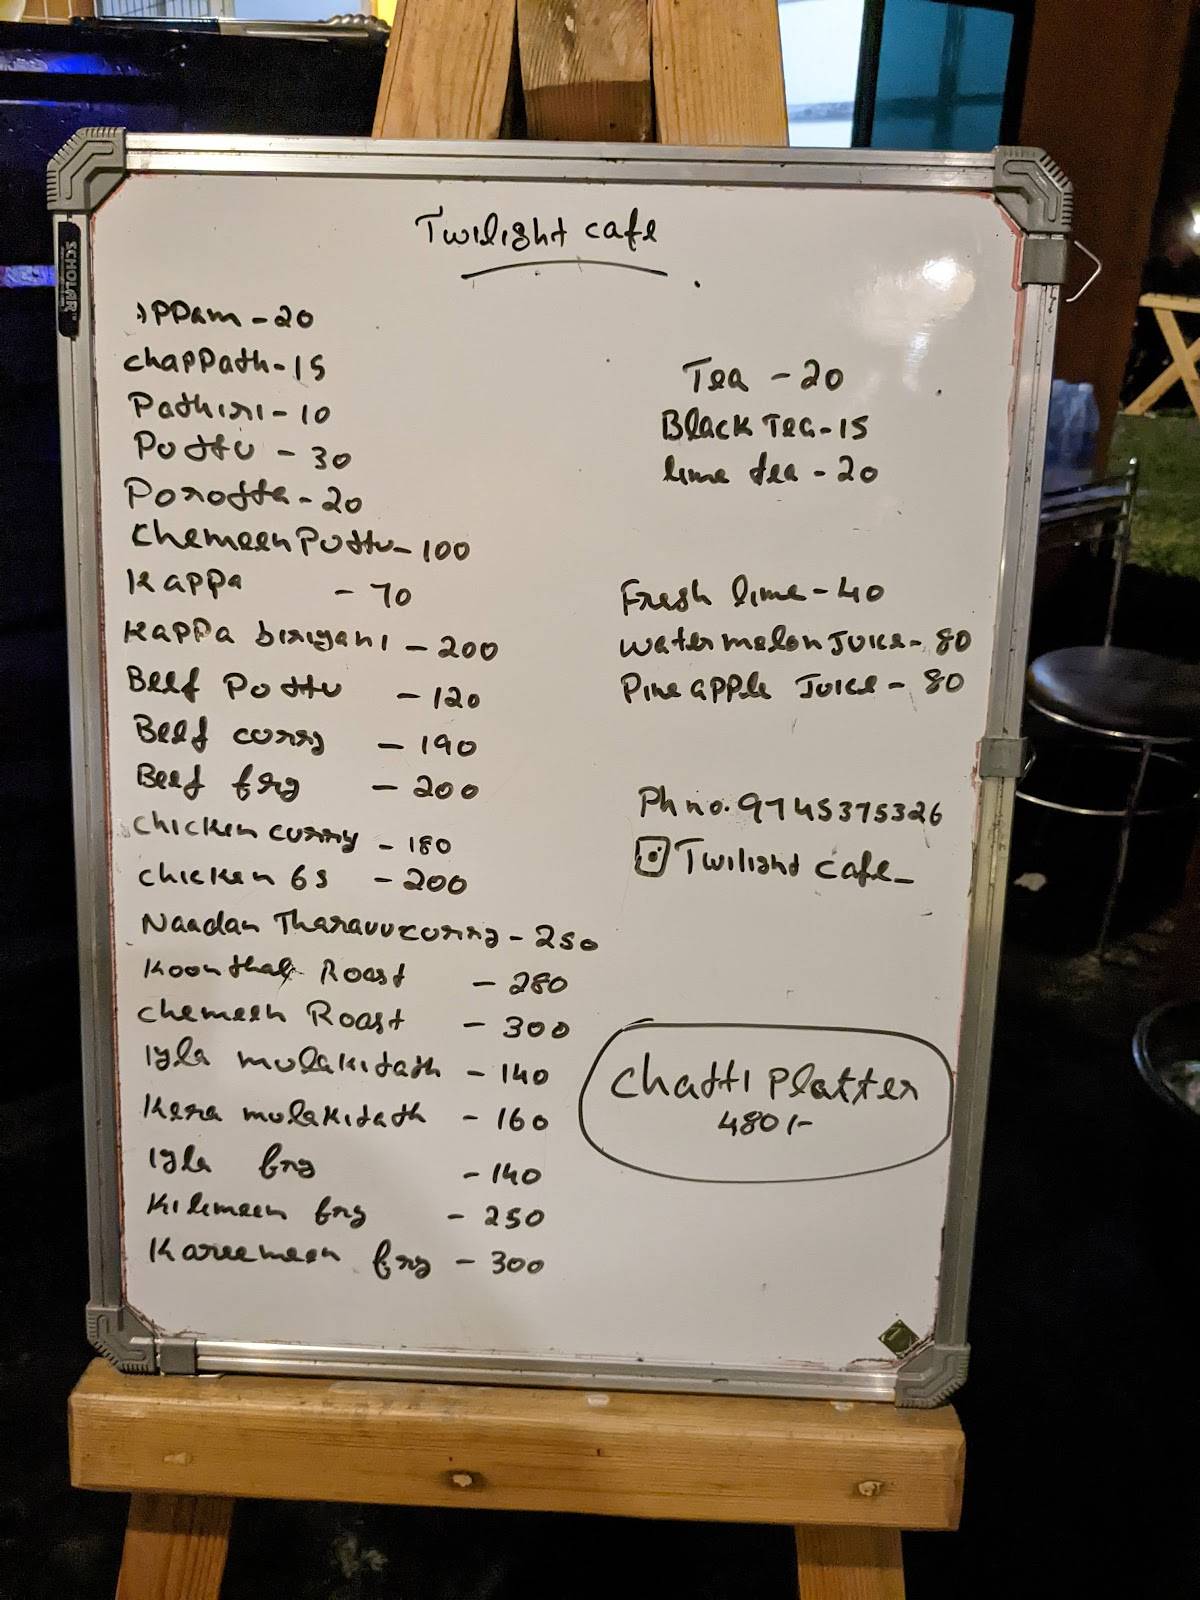 Twilight cafe
SCHOLAR
APPam - 20
chaPPath - 15
Pathiri - 10
Puttu - 30
Porotta - 20
Chemeen Puttu - 100
Kappa - 70
Kappa biriyani - 200
Beef Puttu - 120
Beef curry - 190
Beef fry - 200
chicken curry - 180
chicken 65 - 200
Naadan Tharavu curry - 250
Koonthal Roast - 280
chemeen Roast - 300
Iyla mulakitath - 140
Kera mulakitath - 160
Iyla fry - 140
Kilimeen fry - 250
Kareemeen fry - 300
Tea - 20
Black Tea - 15
lime tea - 20
Fresh lime - 40
watermelon Juice - 80
Pineapple Juice - 80
Ph no. 9745375326
Twilight cafe_
Chatti Platter
480/-